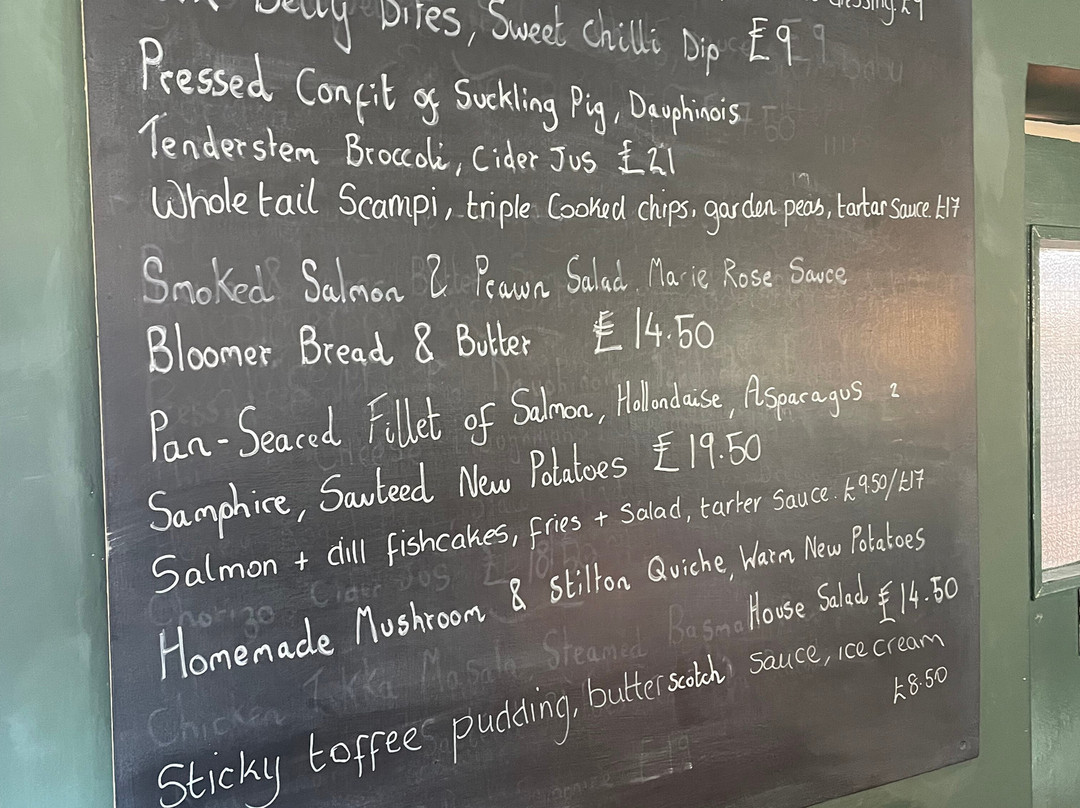 Belly Bites, Sweet Chilli Dip £9
Pressed Confit of Suckling Pig, Dauphinois
Tenderstem Broccoli, Cider Jus £21
Whole tail Scampi, triple Cooked chips, garden peas, tartar Sauce. £17
Smoked Salmon & Prawn Salad. Marie Rose Sauce
Bloomer Bread & Butter £14.50
Pan-Seared Fillet of Salmon, Hollondaise, Asparagus &
Samphire, Sauteed New Potatoes £19.50
Salmon + dill fishcakes, fries + Salad, tarter Sauce. £9.50/£17
Homemade Mushroom & Stilton Quiche, Warm New Potatoes
House Salad £14.50
Sticky toffee pudding, butterscotch sauce, ice cream
£8.50